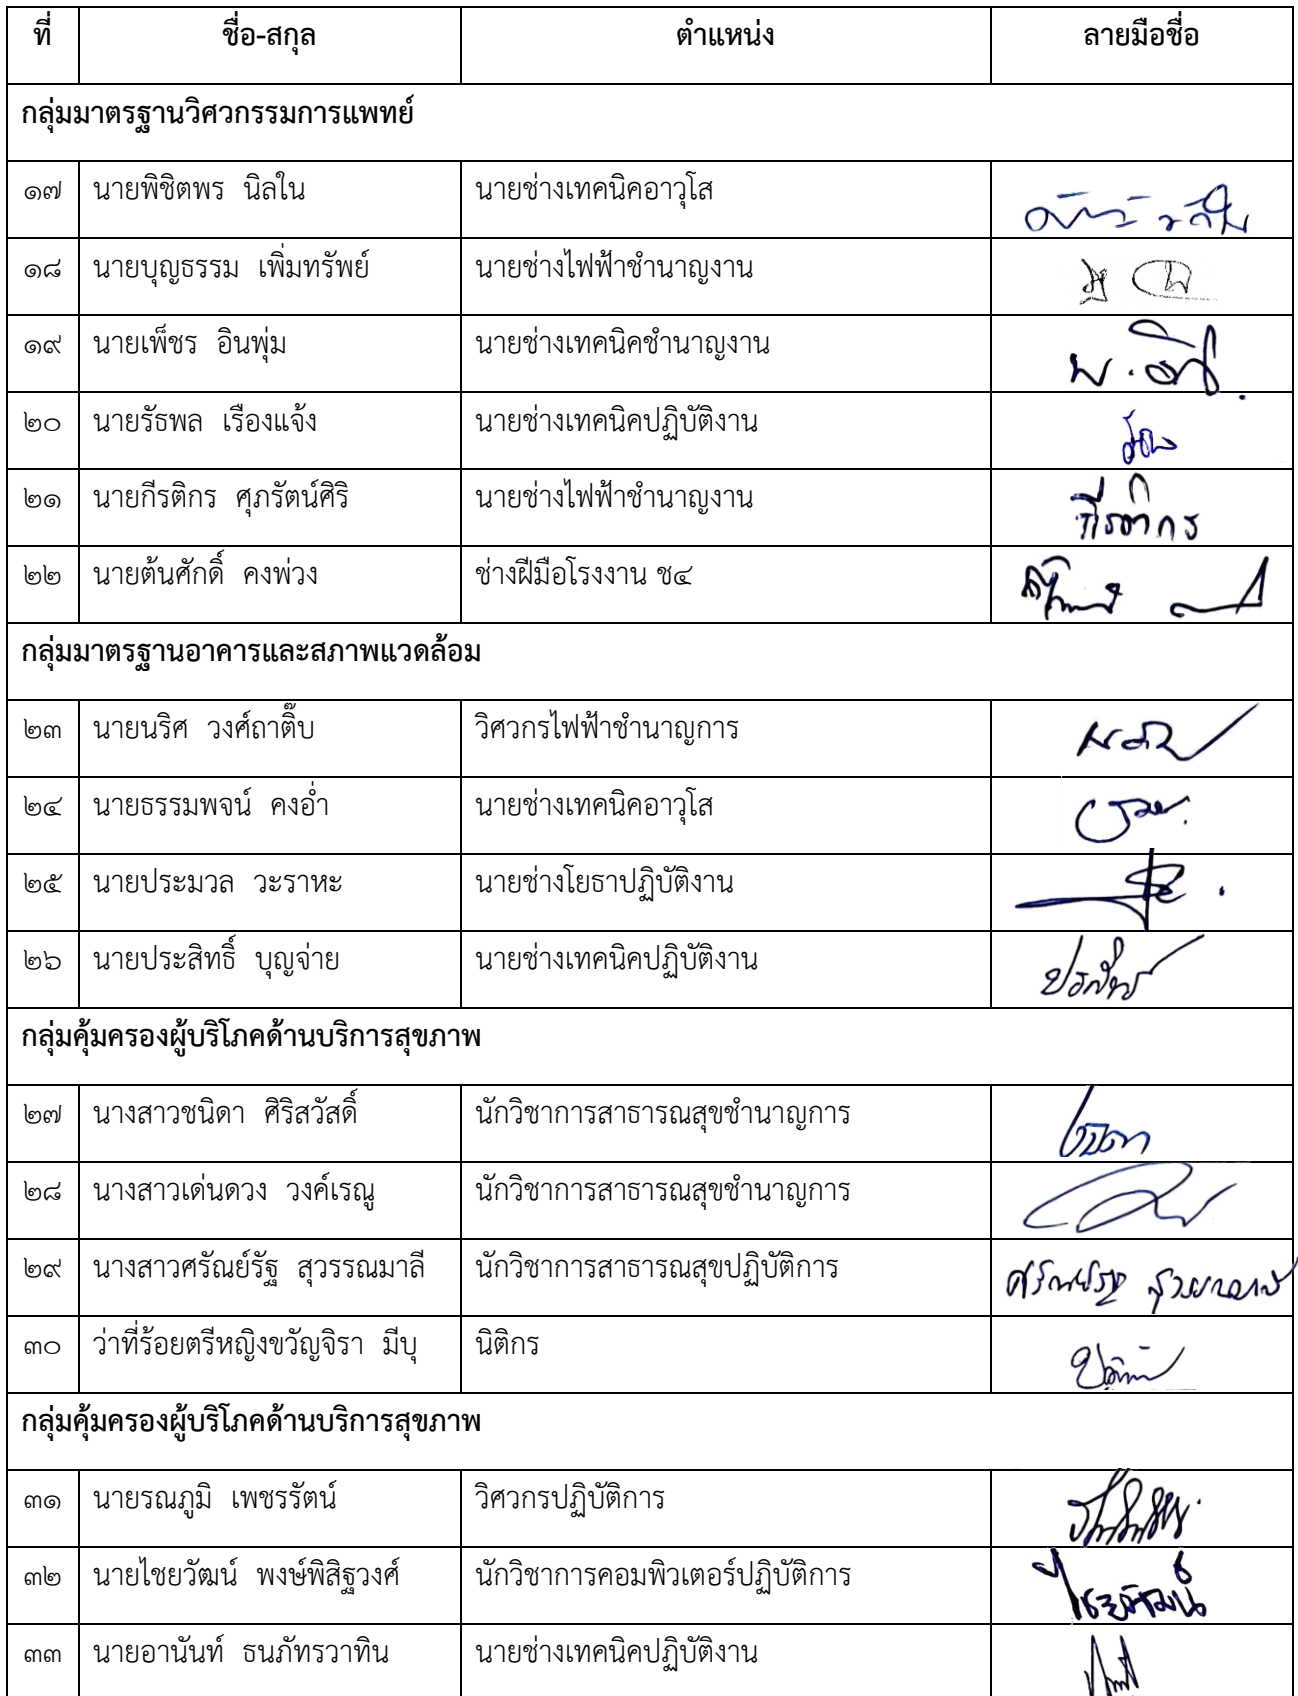 ที่ ชื่อ-สกุล ตำแหน่ง ลายมือชื่อ
กลุ่มมาตรฐานวิศวกรรมการแพทย์
๑๗ นายพิชิตพร นิลใน นายช่างเทคนิคอาวุโส
๑๘ นายบุญธรรม เพิ่มทรัพย์ นายช่างไฟฟ้าชำนาญงาน
๑๙ นายเพ็ชร อินพุ่ม นายช่างเทคนิคชำนาญงาน
๒๐ นายรัธพล เรืองแจ้ง นายช่างเทคนิคปฏิบัติงาน
๒๑ นายกีรติกร ศุภรัตน์ศิริ นายช่างไฟฟ้าชำนาญงาน กีรติกร
๒๒ นายต้นศักดิ์ คงพ่วง ช่างฝีมือโรงงาน ช๔
กลุ่มมาตรฐานอาคารและสภาพแวดล้อม
๒๓ นายนริศ วงศ์ถาติ๊บ วิศวกรไฟฟ้าชำนาญการ
๒๔ นายธรรมพจน์ คงอ่ำ นายช่างเทคนิคอาวุโส
๒๕ นายประมวล วะราหะ นายช่างโยธาปฏิบัติงาน
๒๖ นายประสิทธิ์ บุญจ่าย นายช่างเทคนิคปฏิบัติงาน
กลุ่มคุ้มครองผู้บริโภคด้านบริการสุขภาพ
๒๗ นางสาวชนิดา ศิริสวัสดิ์ นักวิชาการสาธารณสุขชำนาญการ ชนิดา
๒๘ นางสาวเด่นดวง วงค์เรณู นักวิชาการสาธารณสุขชำนาญการ
๒๙ นางสาวศรัณย์รัฐ สุวรรณมาลี นักวิชาการสาธารณสุขปฏิบัติการ ศรัณย์รัฐ สุวรรณมาลี
๓๐ ว่าที่ร้อยตรีหญิงขวัญจิรา มีบุ นิติกร
กลุ่มคุ้มครองผู้บริโภคด้านบริการสุขภาพ
๓๑ นายรณภูมิ เพชรรัตน์ วิศวกรปฏิบัติการ
๓๒ นายไชยวัฒน์ พงษ์พิสิฐวงศ์ นักวิชาการคอมพิวเตอร์ปฏิบัติการ ไชยวัฒน์
๓๓ นายอานันท์ ธนภัทรวาทิน นายช่างเทคนิคปฏิบัติงาน